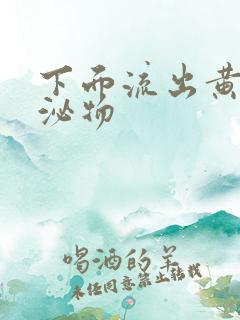 下而流出黄
泌物
喝酒的羊
未经同意禁止转载